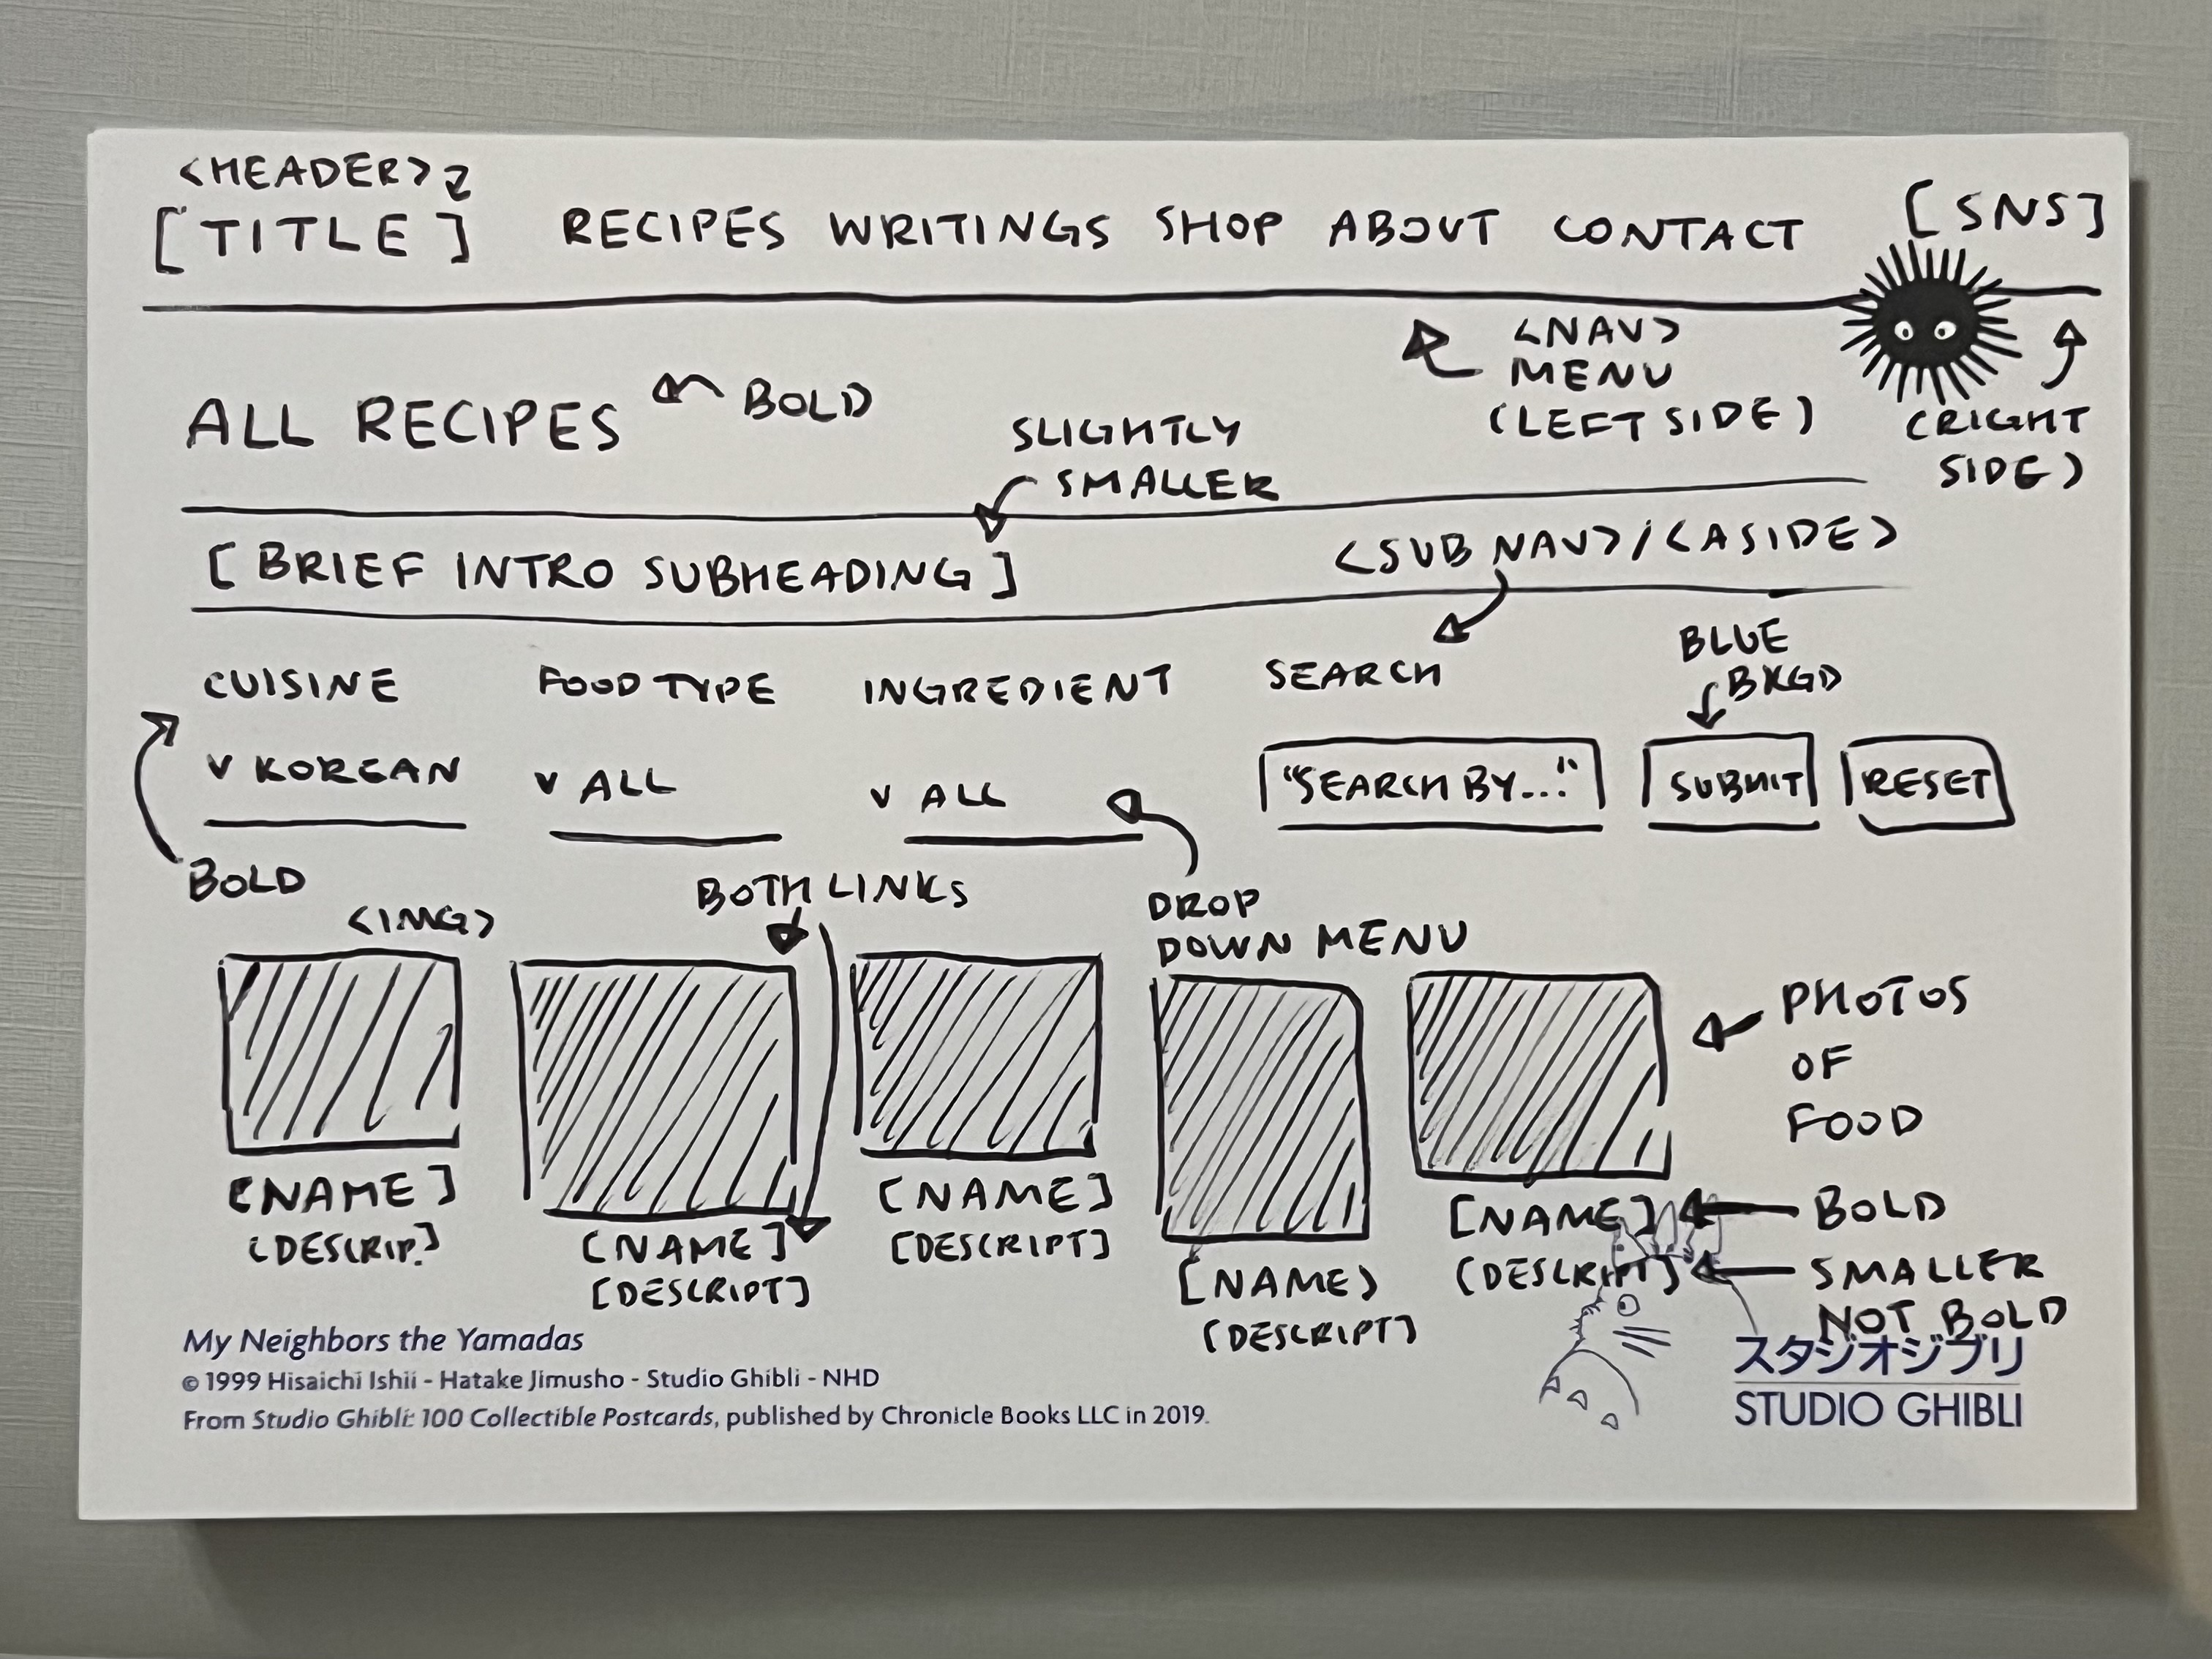 <HEADER>
[TITLE] RECIPES WRITINGS SHOP ABOUT CONTACT [SNS]
<NAV>
MENU
(LEFT SIDE)
(RIGHT
SIDE)
ALL RECIPES
BOLD
SLIGHTLY
SMALLER
[BRIEF INTRO SUBHEADING]
<SUB NAV>/<ASIDE>
CUISINE FOOD TYPE INGREDIENT SEARCH
BLUE
BKGD
V KOREAN V ALL V ALL "SEARCH BY..." SUBMIT RESET
BOLD
BOTH LINKS
DROP
DOWN MENU
<IMG>
PHOTOS
OF
FOOD
[NAME] [NAME] [NAME] [NAME) [NAME]
[DESCRIP.] [DESCRIPT] [DESCRIPT] [DESCRIPT] [DESCRIPT]
BOLD
SMALLER
NOT BOLD
My Neighbors the Yamadas
© 1999 Hisaichi Ishii - Hatake Jimusho - Studio Ghibli - NHD
From Studio Ghibli: 100 Collectible Postcards, published by Chronicle Books LLC in 2019.
スタジオジブリ
STUDIO GHIBLI